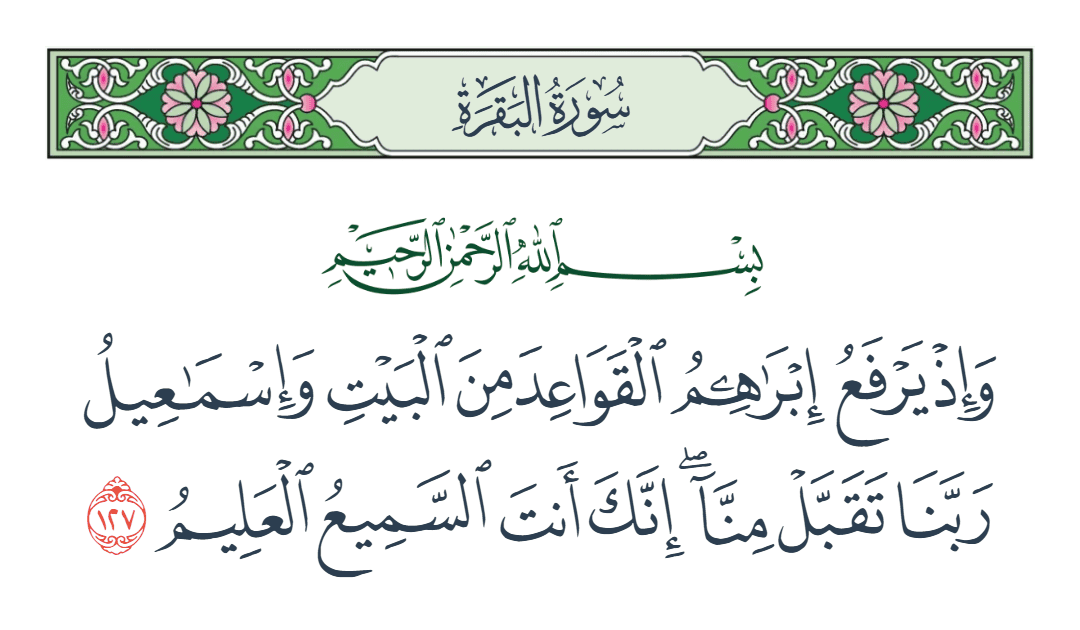 سُورَةُ البَقَرَةِ
بِسْمِ ٱللَّهِ ٱلرَّحْمَٰنِ ٱلرَّحِيمِ
وَإِذْ يَرْفَعُ إِبْرَٰهِـۧمُ ٱلْقَوَاعِدَ مِنَ ٱلْبَيْتِ وَإِسْمَـٰعِيلُ
رَبَّنَا تَقَبَّلْ مِنَّآ ۖ إِنَّكَ أَنتَ ٱلسَّمِيعُ ٱلْعَلِيمُ ١٢٧